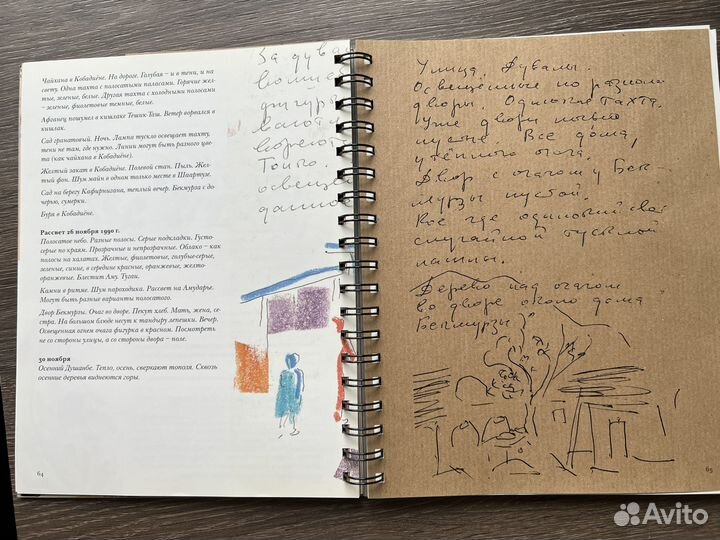 Чайхана в Кобадиёне. На дороге. Голубая – и в тени, и на
свету. Одна тахта с полосатыми паласами. Горячие жел-
тые, зеленые, белые. Другая тахта с холодными полосами
– зеленые, фиолетовые темные, белые.
Афганец пошумел в кишлаке Тешик-Таш. Ветер ворвался в
кишлак.
Сад гранатовый. Ночь. Лампа тускло освещает тахту,
тени не там, где нужно. Линии могут быть разного цве-
та (как чайхана в Кобадиёне).
Желтый закат в Кобадиёне. Полевой стан. Пыль. Жел-
тый фон. Шум майн в одном только месте в Шаартузе.
Сад на берегу Кафирнигана, теплый вечер. Бекмурза с до-
черью, сумерки.
Буря в Кобадиёне.
Рассвет 26 ноября 1990 г.
Полосатое небо. Разные полосы. Серые подкладки. Густо-
серые по краям. Прозрачные и непрозрачные. Облако – как
полосы на халатах. Желтые, фиолетовые, голубые-серые,
зеленые, синие, в середине красные, оранжевые, желто-
оранжевые. Блестит Аму. Тугаи.
Камни в ритме. Шум пароходика. Рассвет на Амударье.
Могут быть разные варианты полосатого.
Двор Бекмурзы. Очаг во дворе. Пекут хлеб. Мать, жена, се-
стра. На большом блюде несут к тандыру лепешки. Вечер.
Освещенная огнем очага фигурка в красном. Посмотреть
не со стороны улицы, а со стороны двора – поле.
30 ноября
Осенний Душанбе. Тепло, осень, сверкают тополя. Сквозь
осенние деревья виднеются горы.
64
За дува
фигуры
освещен
Улица. Дувалы.
Освещенные по разному
дворы. Одинокие тахта.
Уже двори
пусто. Все дома,
у очага.
Двор с очагом у Бек-
мурзы пустой.
Кое где одинокий све
случайной тусклой
лампы.
Дерево над очагом
во дворе около дома
Бекмурзы
65
Avito